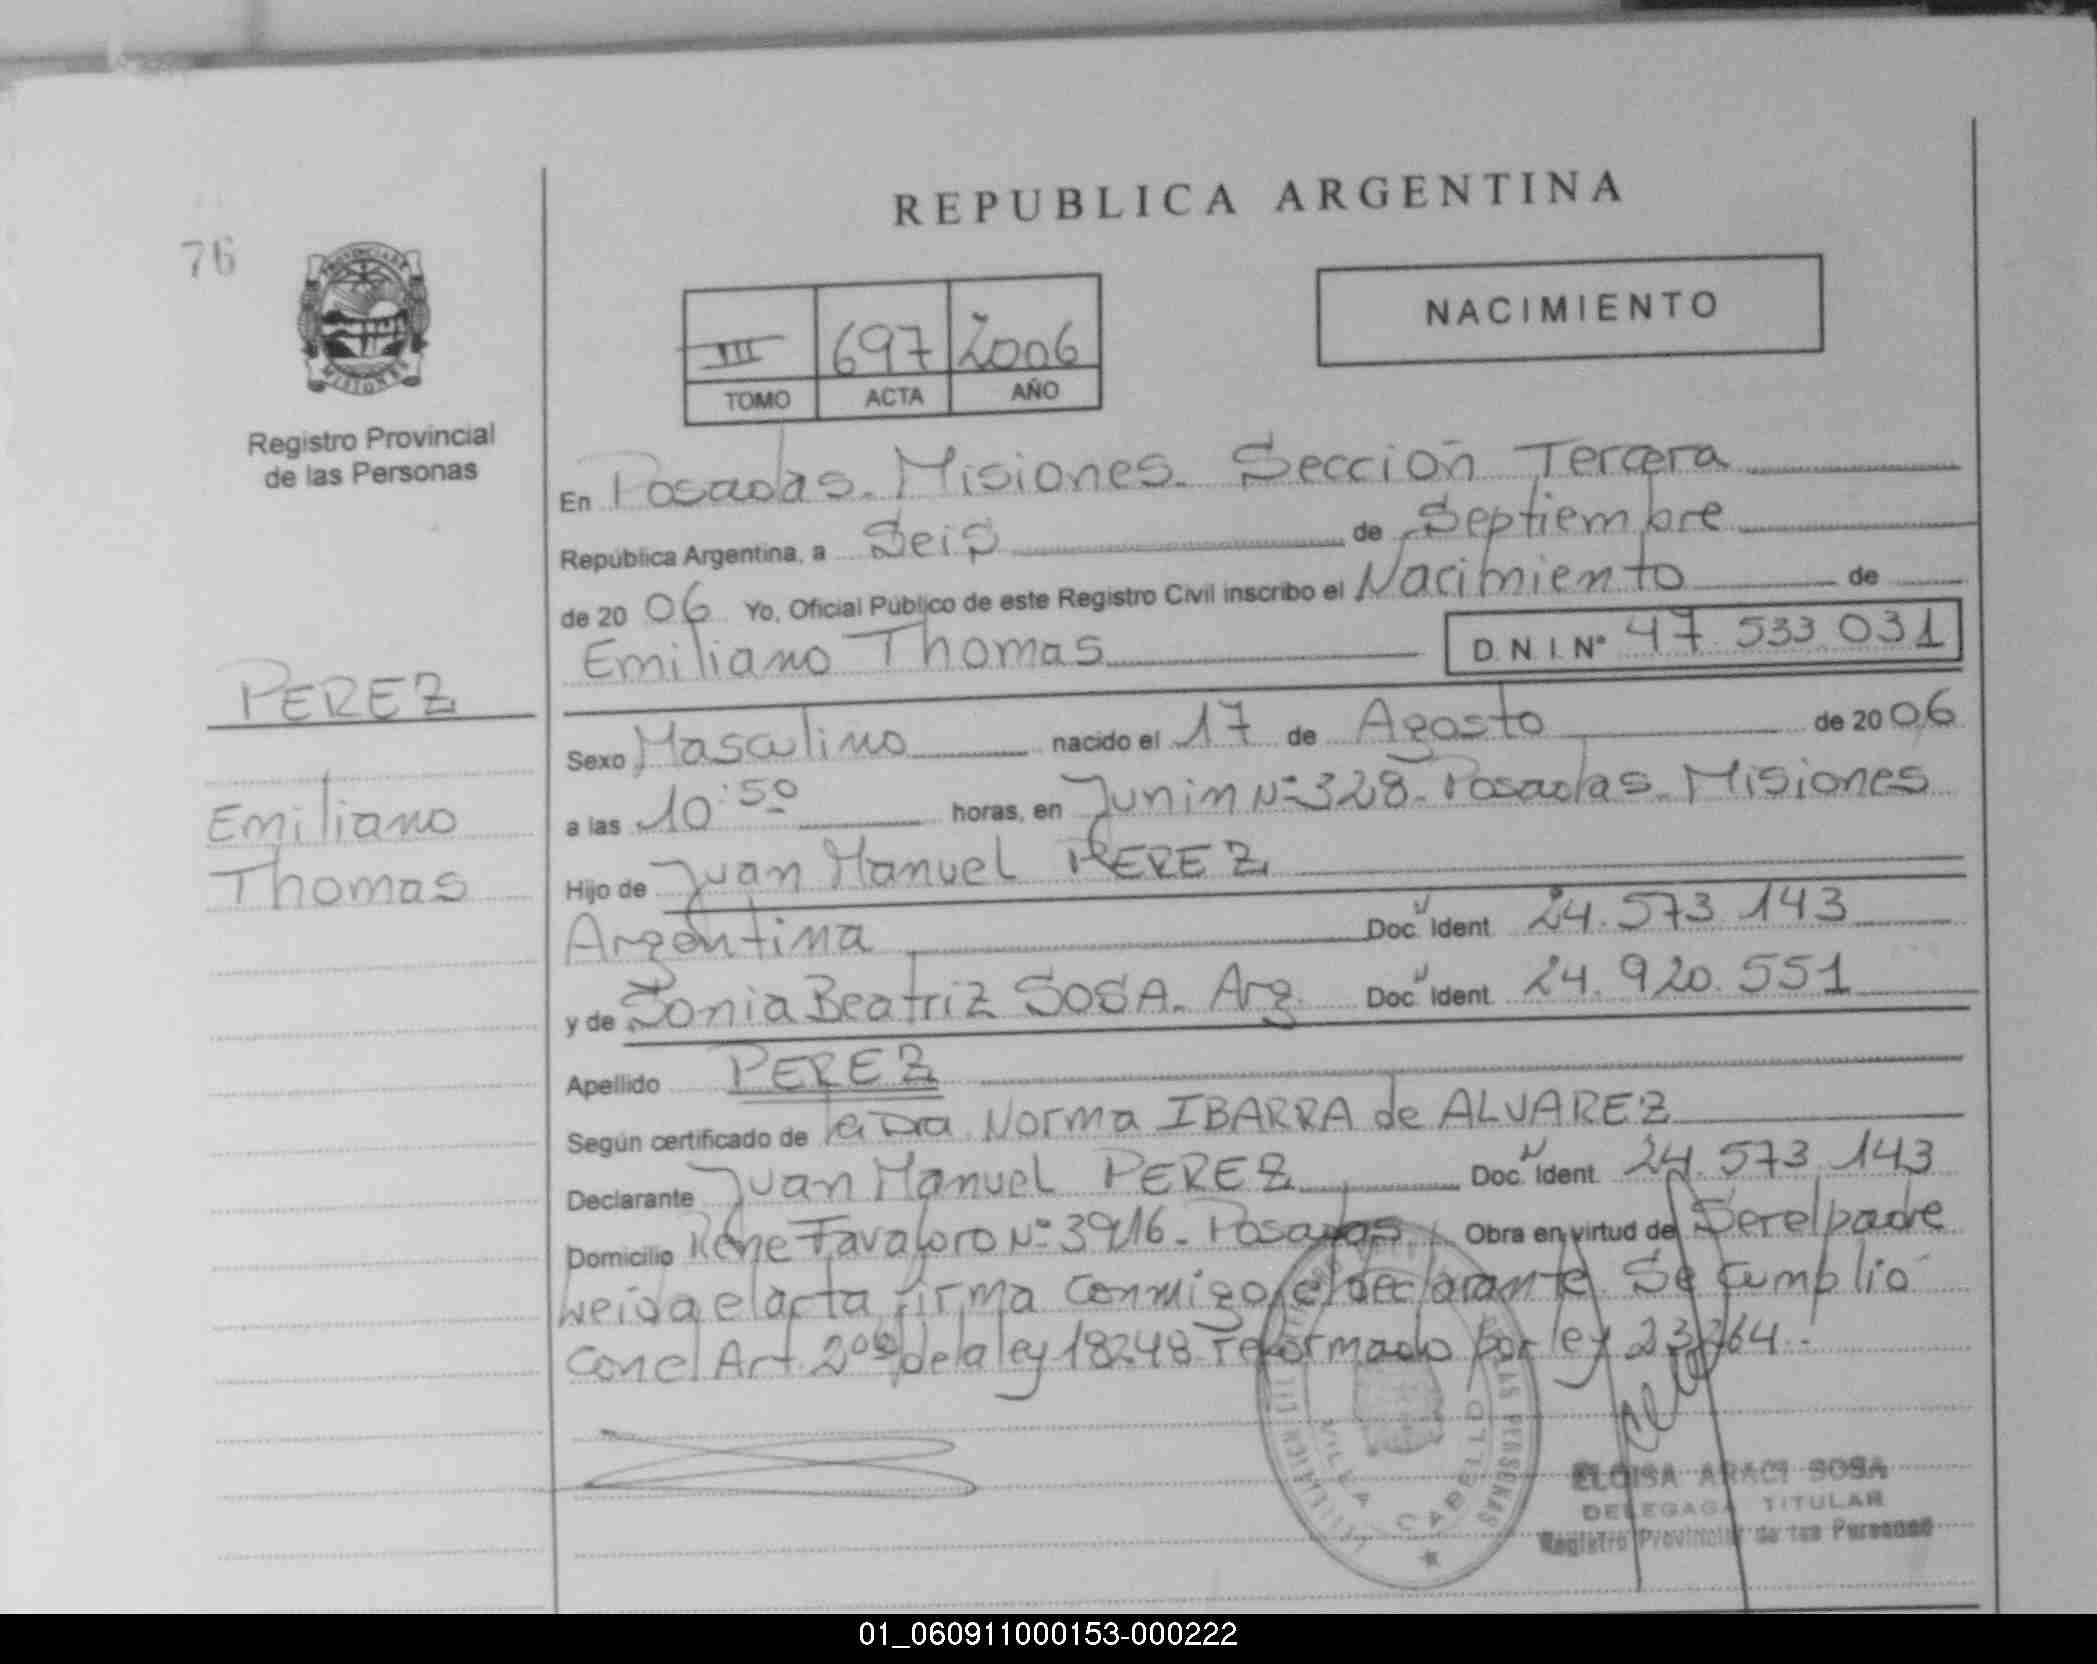 REPUBLICA ARGENTINA
76
PROVINCIA DE
MISIONES
Registro Provincial
de las Personas
III 697 2006
TOMO ACTA AÑO
NACIMIENTO
En Posadas. Misiones. Sección Tercera
República Argentina, a Seis de Septiembre
de 2006 Yo, Oficial Público de este Registro Civil inscribo el Nacimiento de
Emiliano Thomas D.N.I. Nº 47.533.031
PEREZ
Emiliano
Thomas
Sexo Masculino nacido el 17 de Agosto de 2006
a las 10:50 horas, en Junin Nº 328. Posadas. Misiones
Hijo de Juan Manuel PEREZ
Argentina Doc. Ident 24.573.143
y de Sonia Beatriz SOSA. Arg. Doc. Ident 24.920.551
Apellido PEREZ
Según certificado de la Dra. Norma IBARRA de ALVAREZ
Declarante Juan Manuel PEREZ Doc. Ident. 24.573.143
Domicilio Rene Favaloro Nº 3916. Posadas Obra en virtud de Ser el padre
Leida el acta, firma conmigo el declarante. Se cumplió
con el Art. 2º de la ley 18248 reformado por ley 23264.
LAS PERSONAS
VILLA CABELLO
ELOISA ARACI SOSA
DELEGADA TITULAR
Registro Provincial de las Personas
01_060911000153-000222